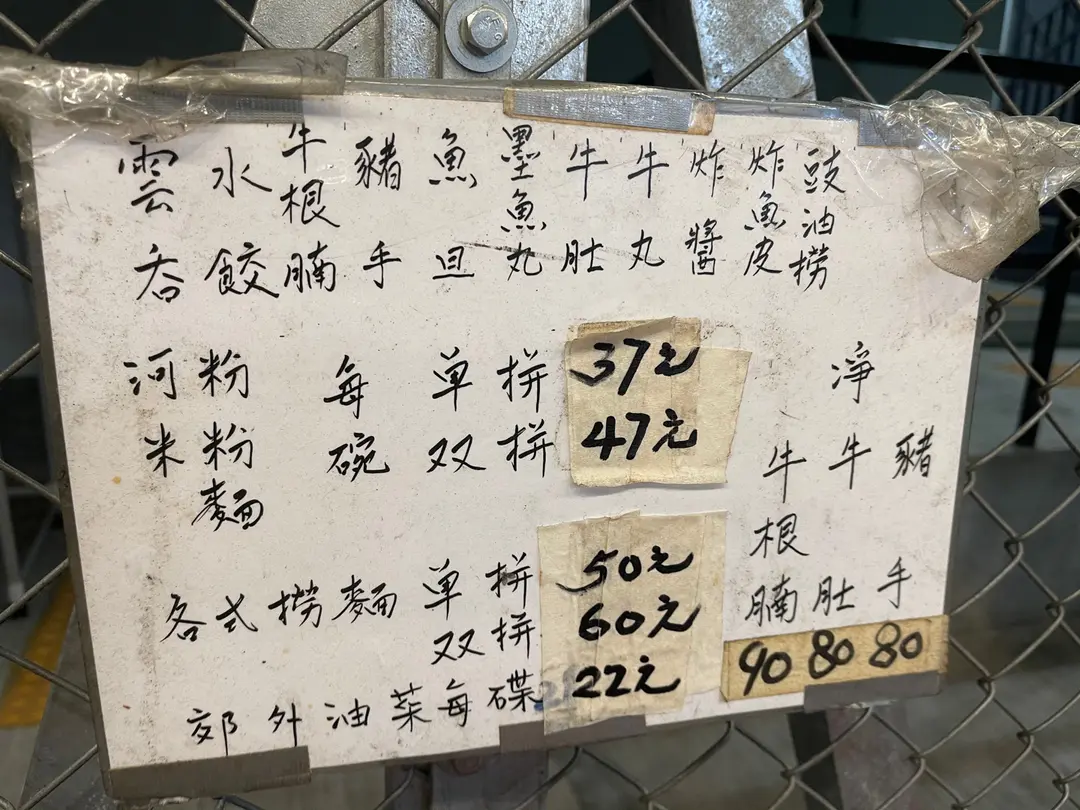 雲吞
水餃
牛根腩
豬手
魚旦
墨魚丸
牛肚
牛丸
炸醬
炸魚皮
豉油撈
河粉 每 单拼 37元
米粉 碗 双拼 47元
麵
各式撈麵 单拼 50元
双拼 60元
郊外油菜每碟 22元
淨
牛根腩 90
牛肚 80
豬手 80